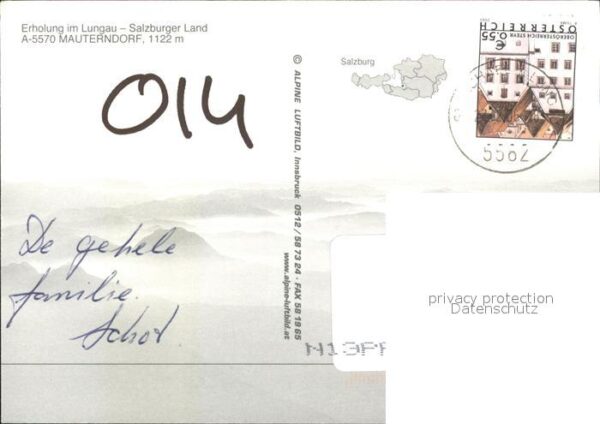 Erholung im Lungau – Salzburger Land
A-5570 MAUTERNDORF, 1122 m
014
De gehele
familie.
Schot.
© ALPINE LUFTBILD, Innsbruck 0512 / 58 73 24 · FAX 58 19 65
www.alpine-luftbild.at
Salzburg
€ 0,55
ÖSTERREICH
OBERÖSTERREICH STEYR
5562
privacy protection
Datenschutz